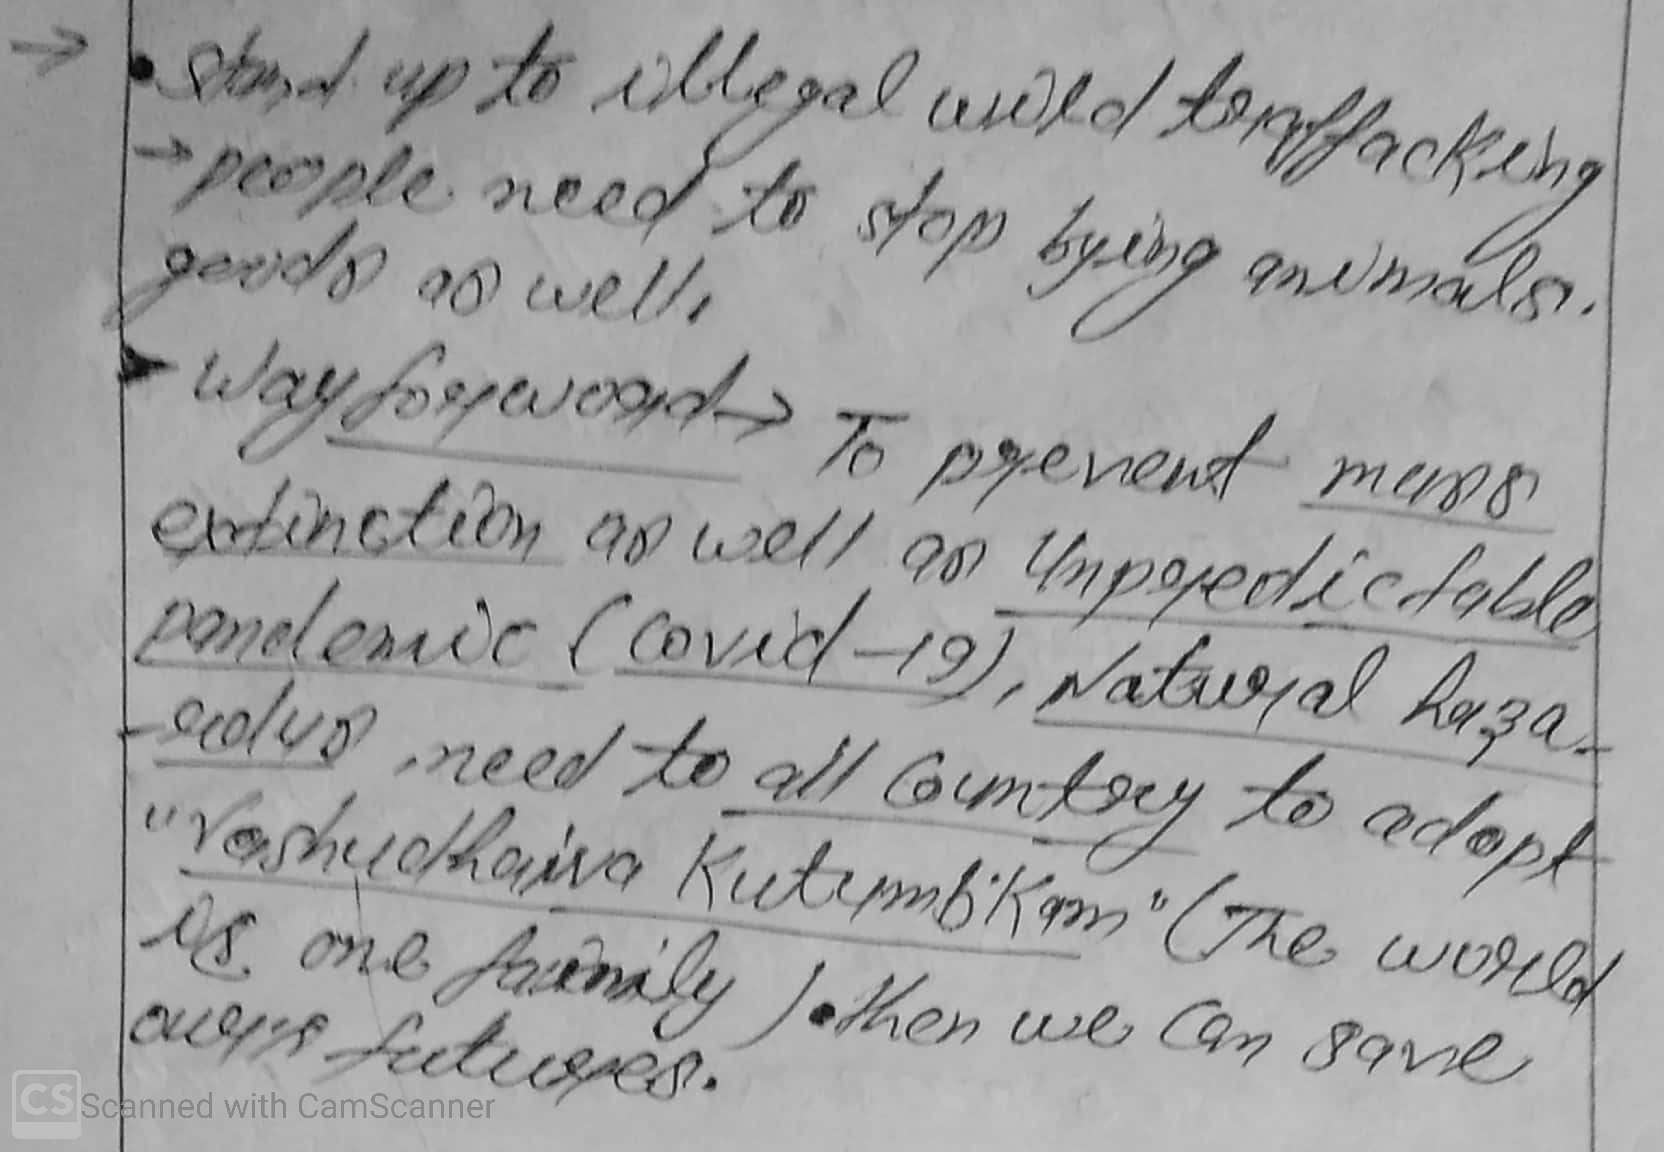 → • Stand up to illegal wild traffacking
→ people need to stop bying animals.
goods as well.
► Way forword → To prevent mass
extinction as well as Unpredictable
pandemic (Covid-19), Natural haza-
-rdus need to all Country to adopt
"Vashudhaiva Kutumbkam" (The world
is one family). then we can save
ours futures.
CS Scanned with CamScanner